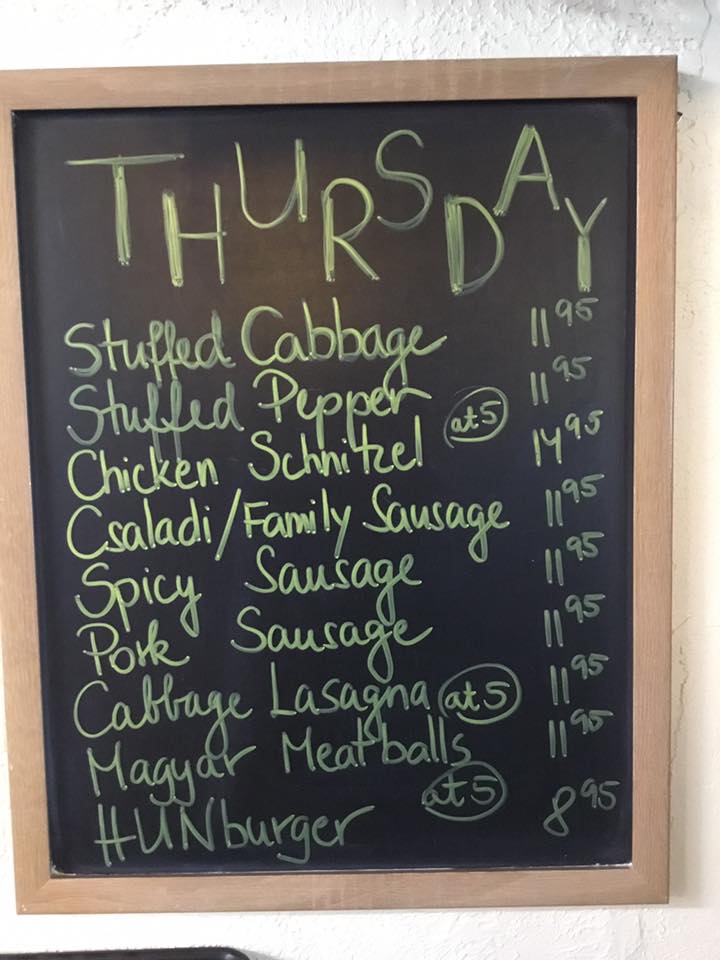 THURSDAY
Stuffed Cabbage 11 95
Stuffed Pepper 11 95
Chicken Schnitzel at 5 14 95
Csaladi/Family Sausage 11 95
Spicy Sausage 11 95
Pork Sausage 11 95
Cabbage Lasagna at 5 11 95
Magyar Meatballs 11 95
HUNburger at 5 8 95